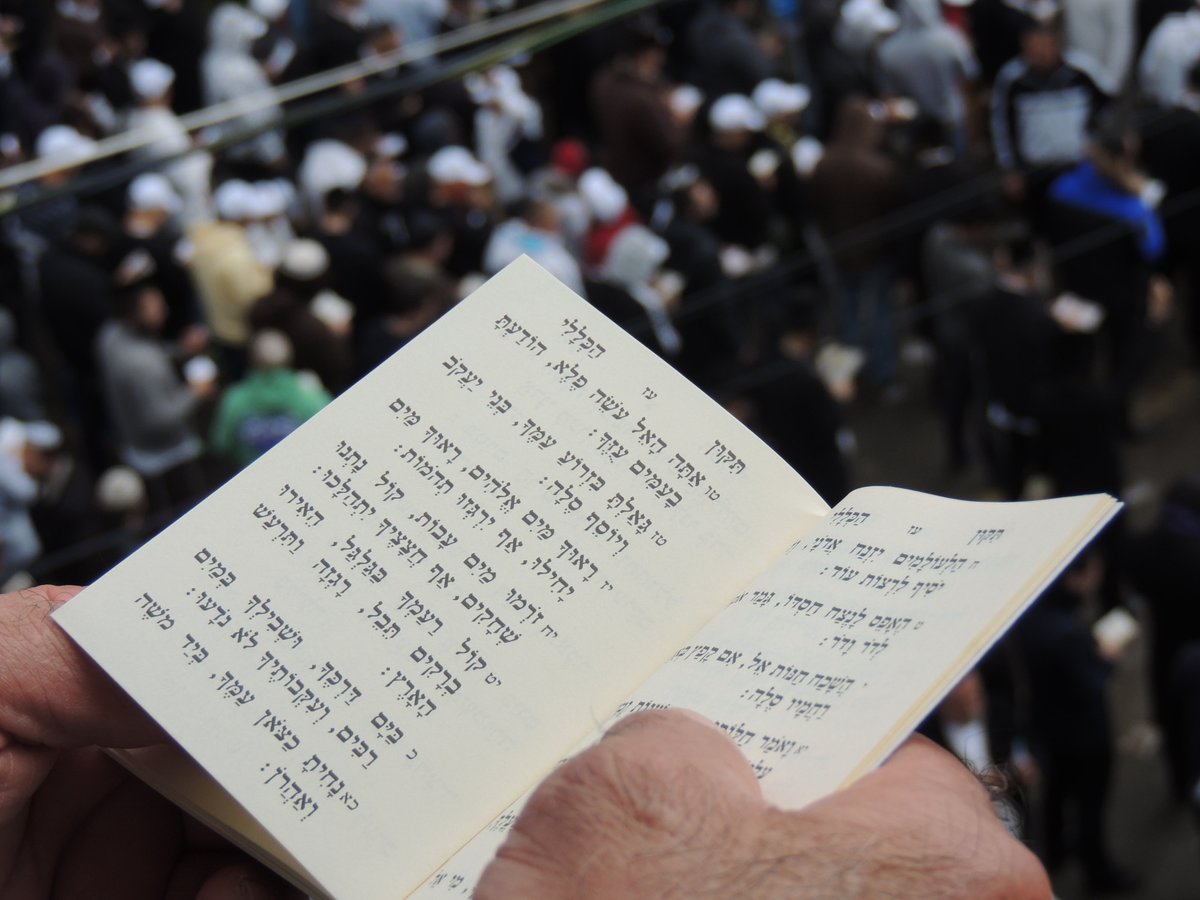 תִּקּוּן עז הַכְּלָלִי
ח הַלְעוֹלָמִים יִזְנַח אֲדֹנָי,
יֹסִיף לִרְצוֹת עוֹד:
ט הֶאָפֵס לָנֶצַח חַסְדּוֹ, גָּמַר
לְדֹר וָדֹר:
י הֲשָׁכַח חַנּוֹת אֵל, אִם קָפַץ
רַחֲמָיו סֶלָה:
יא וָאֹמַר חַלּוֹתִי
תִּקּוּן עז הַכְּלָלִי
טו אַתָּה הָאֵל עֹשֵׂה פֶלֶא, הוֹדַעְתָּ
בָעַמִּים עֻזֶּךָ:
טז גָּאַלְתָּ בִּזְרוֹעַ עַמֶּךָ, בְּנֵי יַעֲקֹב
וְיוֹסֵף סֶלָה:
יז רָאוּךָ מַּיִם אֱלֹהִים, רָאוּךָ מַּיִם
יָחִילוּ, אַף יִרְגְּזוּ תְהֹמוֹת:
יח זֹרְמוּ מַיִם עָבוֹת, קוֹל נָתְנוּ
שְׁחָקִים, אַף חֲצָצֶיךָ יִתְהַלָּכוּ:
יט קוֹל רַעַמְךָ בַּגַּלְגַּל, הֵאִירוּ
בְרָקִים תֵּבֵל, רָגְזָה וַתִּרְעַשׁ
הָאָרֶץ:
כ בַּיָּם דַּרְכֶּךָ, וּשְׁבִילְךָ בְּמַיִם
רַבִּים, וְעִקְּבוֹתֶיךָ לֹא נֹדָעוּ:
כא נָחִיתָ כַצֹּאן עַמֶּךָ, בְּיַד מֹשֶׁה
וְאַהֲרֹן: